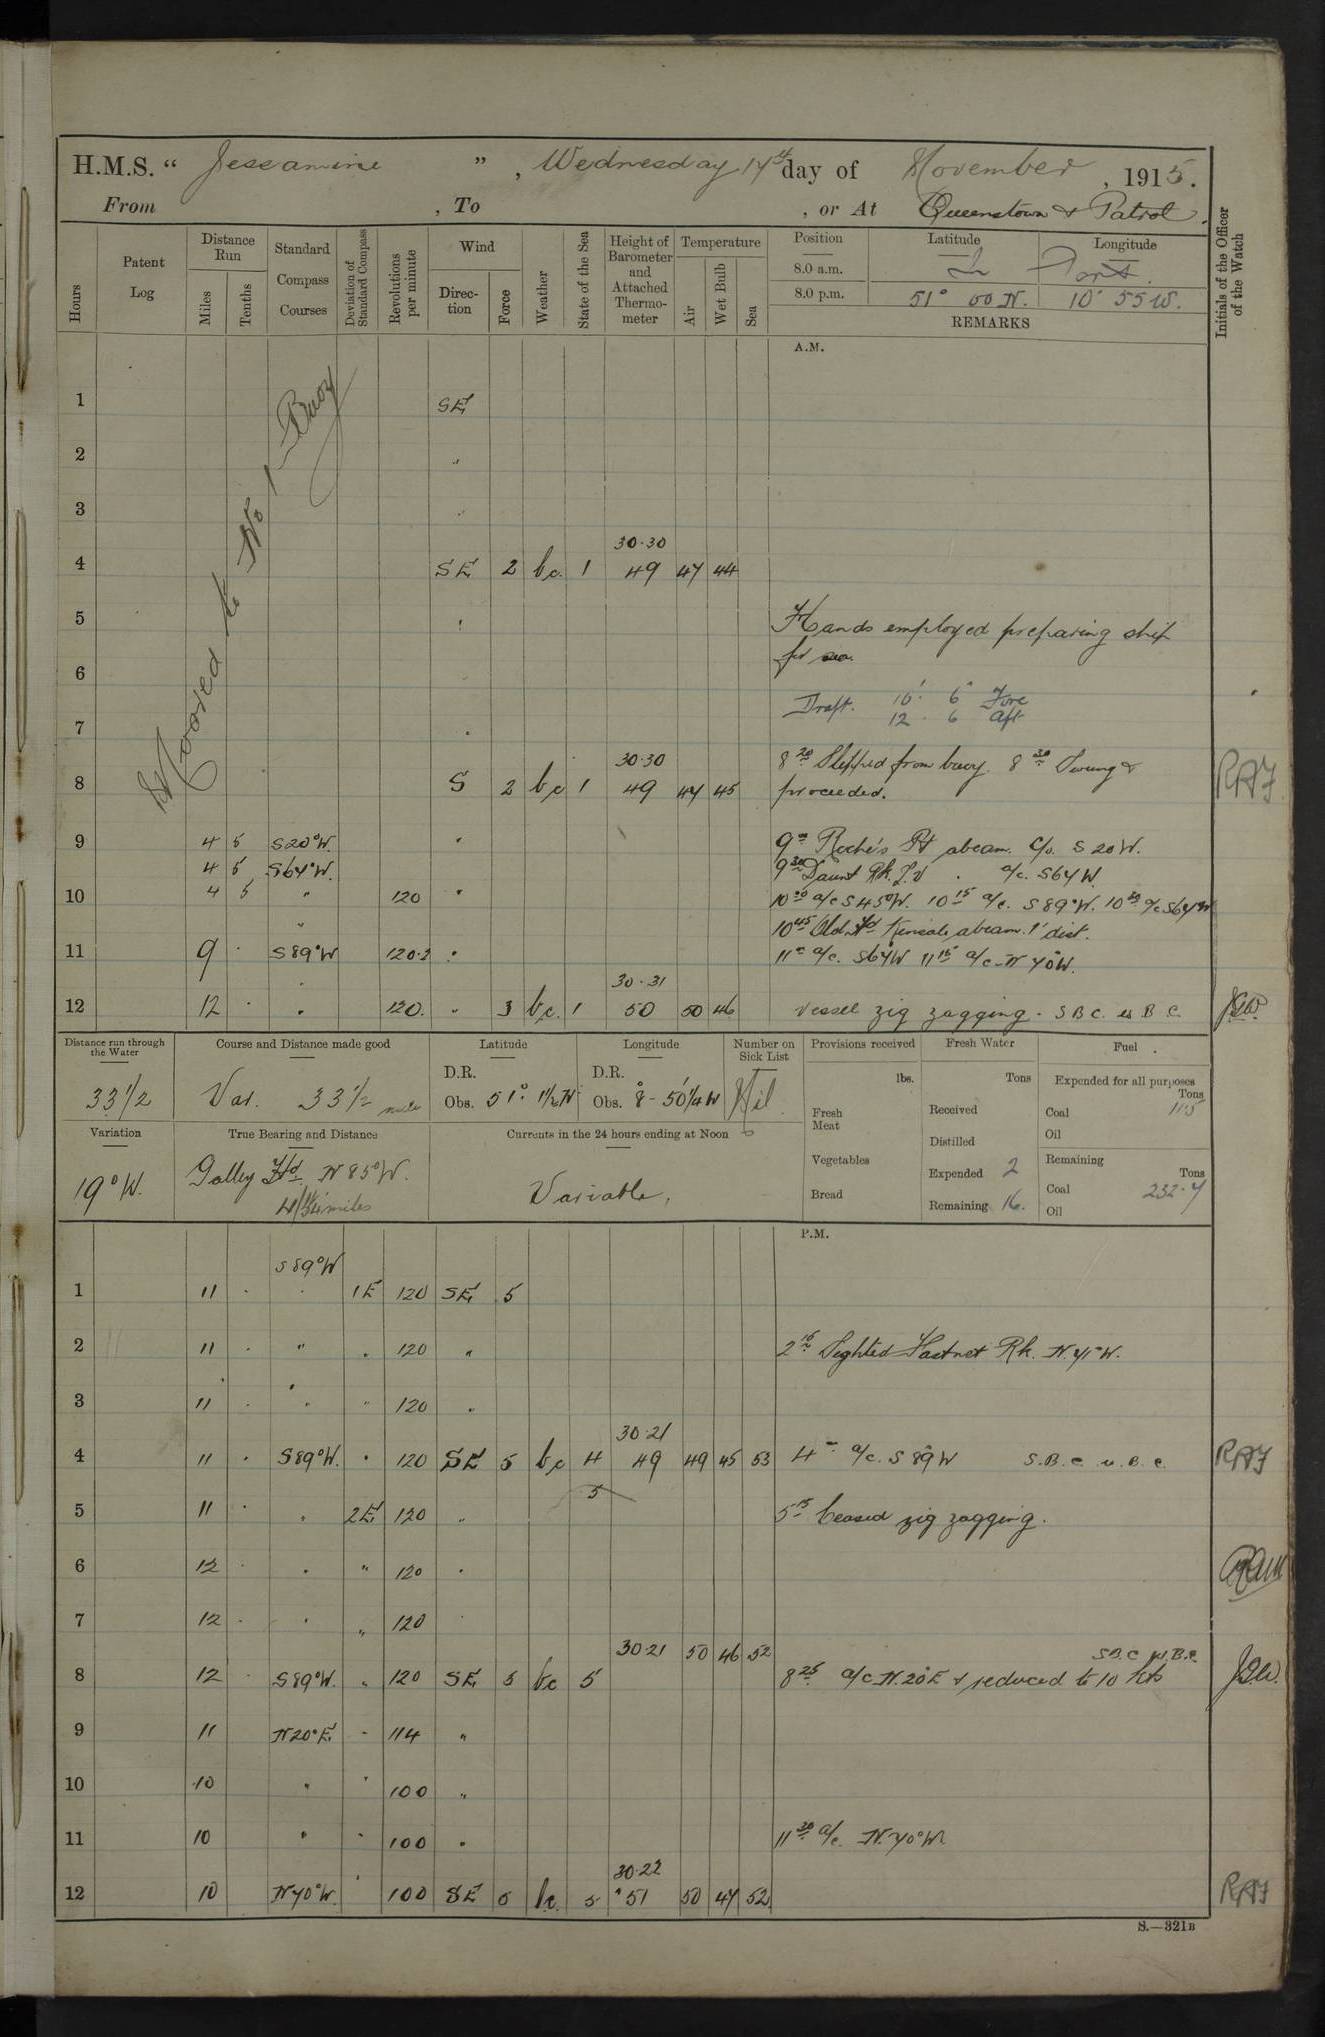 H.M.S. “ Jessamine ”, Wednesday 17th day of November, 1915.
From , To , or At Queenstown & Patrol.
Hours
Patent Log
Distance Run
Miles
Tenths
Standard Compass Courses
Deviation of Standard Compass
Revolutions per minute
Wind
Direction
Force
Weather
State of the Sea
Height of Barometer and Attached Thermometer
Temperature
Air
Wet Bulb
Sea
Position
Latitude
Longitude
8.0 a.m. In Port
8.0 p.m. 51° 00 N. 10° 55 W.
REMARKS
Initials of the Officer of the Watch
A.M.
Moored to No 1 Buoy
1 SE
2 "
3 "
30.30
4 SE 2 bc. 1 49 47 44
5 " Hands employed preparing ship
for sea.
6
Draft. 10' 6" Fore
12 6 Aft
7 "
30.30 8 20 Slipped from buoy. 8 30 Swung &
8 S 2 bc 1 49 47 45 proceeded. RAF
9 4 5 S20°W. " 9 00 Roche's Pt abeam. C/o. S 20 W.
4 5 S64°W. 9 30 Daunt Rk. L.V. a/c. S64W.
10 4 5 " 120 " 10 00 a/c S45°W. 10 15 a/c. S89°W. 10 30 a/c S64°W
" 10 45 Old Hd Kinsale abeam. 1' dist.
11 9 . S89°W 120.2 " 11 a/c. S64°W 11 15 a/c N 70°W.
30.31
12 12 . " 120. " 3 bc. 1 50 50 46 Vessel zig zagging. S B C. u B C. JGW.
Distance run through the Water
33 1/2
Course and Distance made good
Var. 33 1/2 miles
Latitude
D.R.
Obs. 51° 1 1/2 N
Longitude
D.R.
Obs. 8° 50 1/4 W
Number on Sick List
Nil
Provisions received
lbs.
Fresh Meat
Vegetables
Bread
Fresh Water
Tons
Received
Distilled
Expended 2
Remaining 16.
Fuel
Expended for all purposes
Tons
Coal 11.5
Oil
Remaining
Tons
Coal 232.7
Oil
Variation
19° W.
True Bearing and Distance
Galley Hd N 85° W.
miles
Currents in the 24 hours ending at Noon
Variable,
P.M.
S89°W
1 11 . " 1E 120 SE 5
2 11 . " " 120 " 2 15 Sighted Fastnet Rk. N.71°W.
3 11 . " " 120 "
30.21
4 11 . S89°W. " 120 SE 5 bc 4 49 49 45 53 4 a/c. S 89°W S.B.C. u.B.C. RAF
5
5 11 . " 2E 120 " 5 15 Ceased zig zagging.
6 12 . " " 120 "
7 12 . " " 120
30.21 50 46 52 S.B.C u.B.C.
8 12 . S89°W. " 120 SE 5 bc 5 8 25 a/c N.20°E & reduced to 10 Kts JGW.
9 11 N20°E " 114 "
10 10 " " 100 "
11 10 " " 100 " 11 30 a/c. N.70°W.
30.22
12 10 N70°W. " 100 SE 5 bc. 5 51 50 47 52 RAF
S.—321B